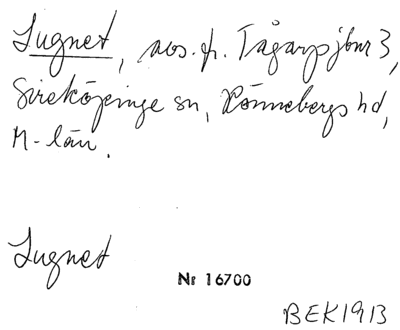 Lugnet, avs. fr. Tågarp jbnr 3,
Sireköpinge sn, Rönnebergs hd,
M-län.
Lugnet
Nr 16700
BEK1913